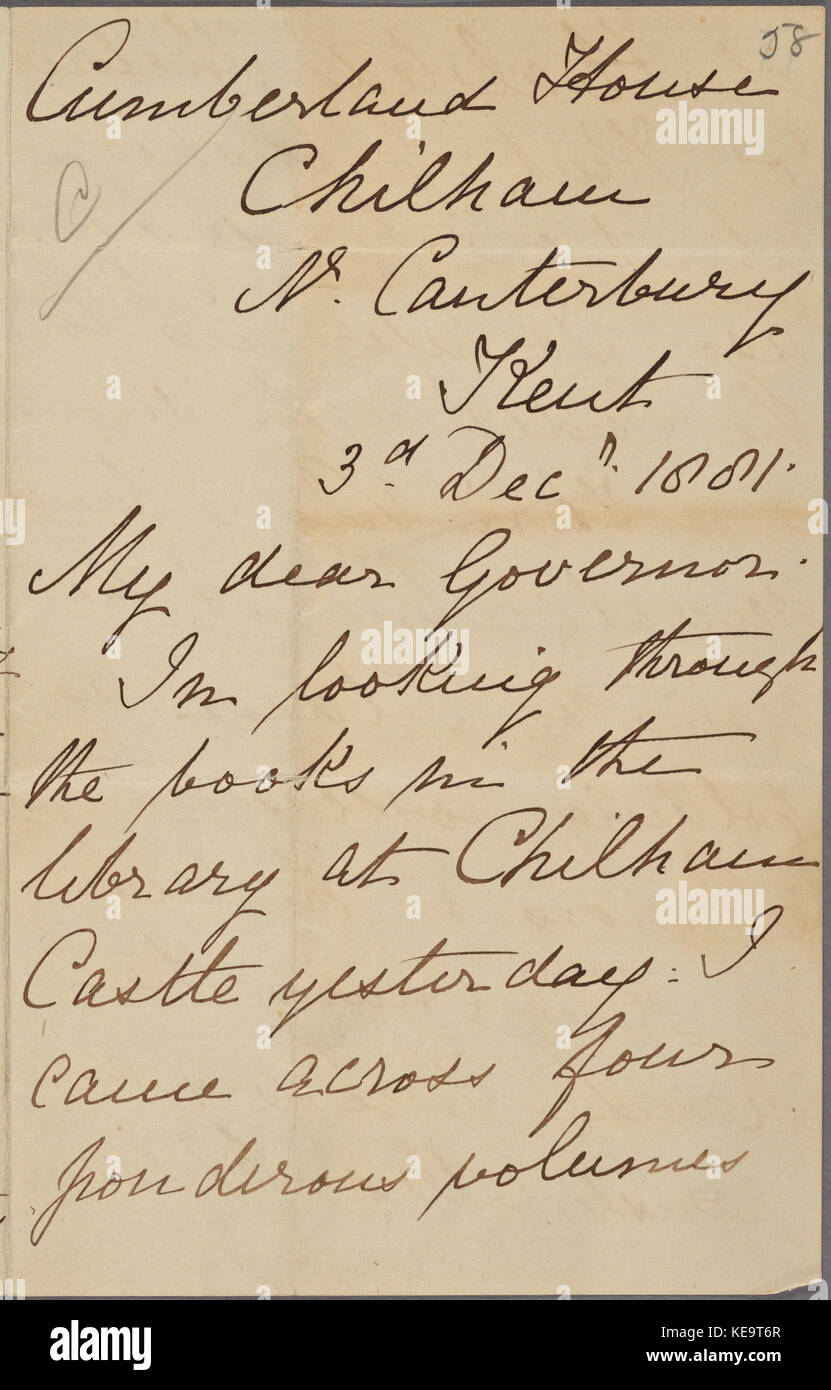 58
Cumberland House
Chilham
Nr. Canterbury
Kent
3d Decr. 1881.
My dear Governor.
In looking through
the books in the
library at Chilham
Castle yesterday: I
came across four
ponderous volumes
a alamy stock photo
alamy
Image ID: KE9T6R
www.alamy.com